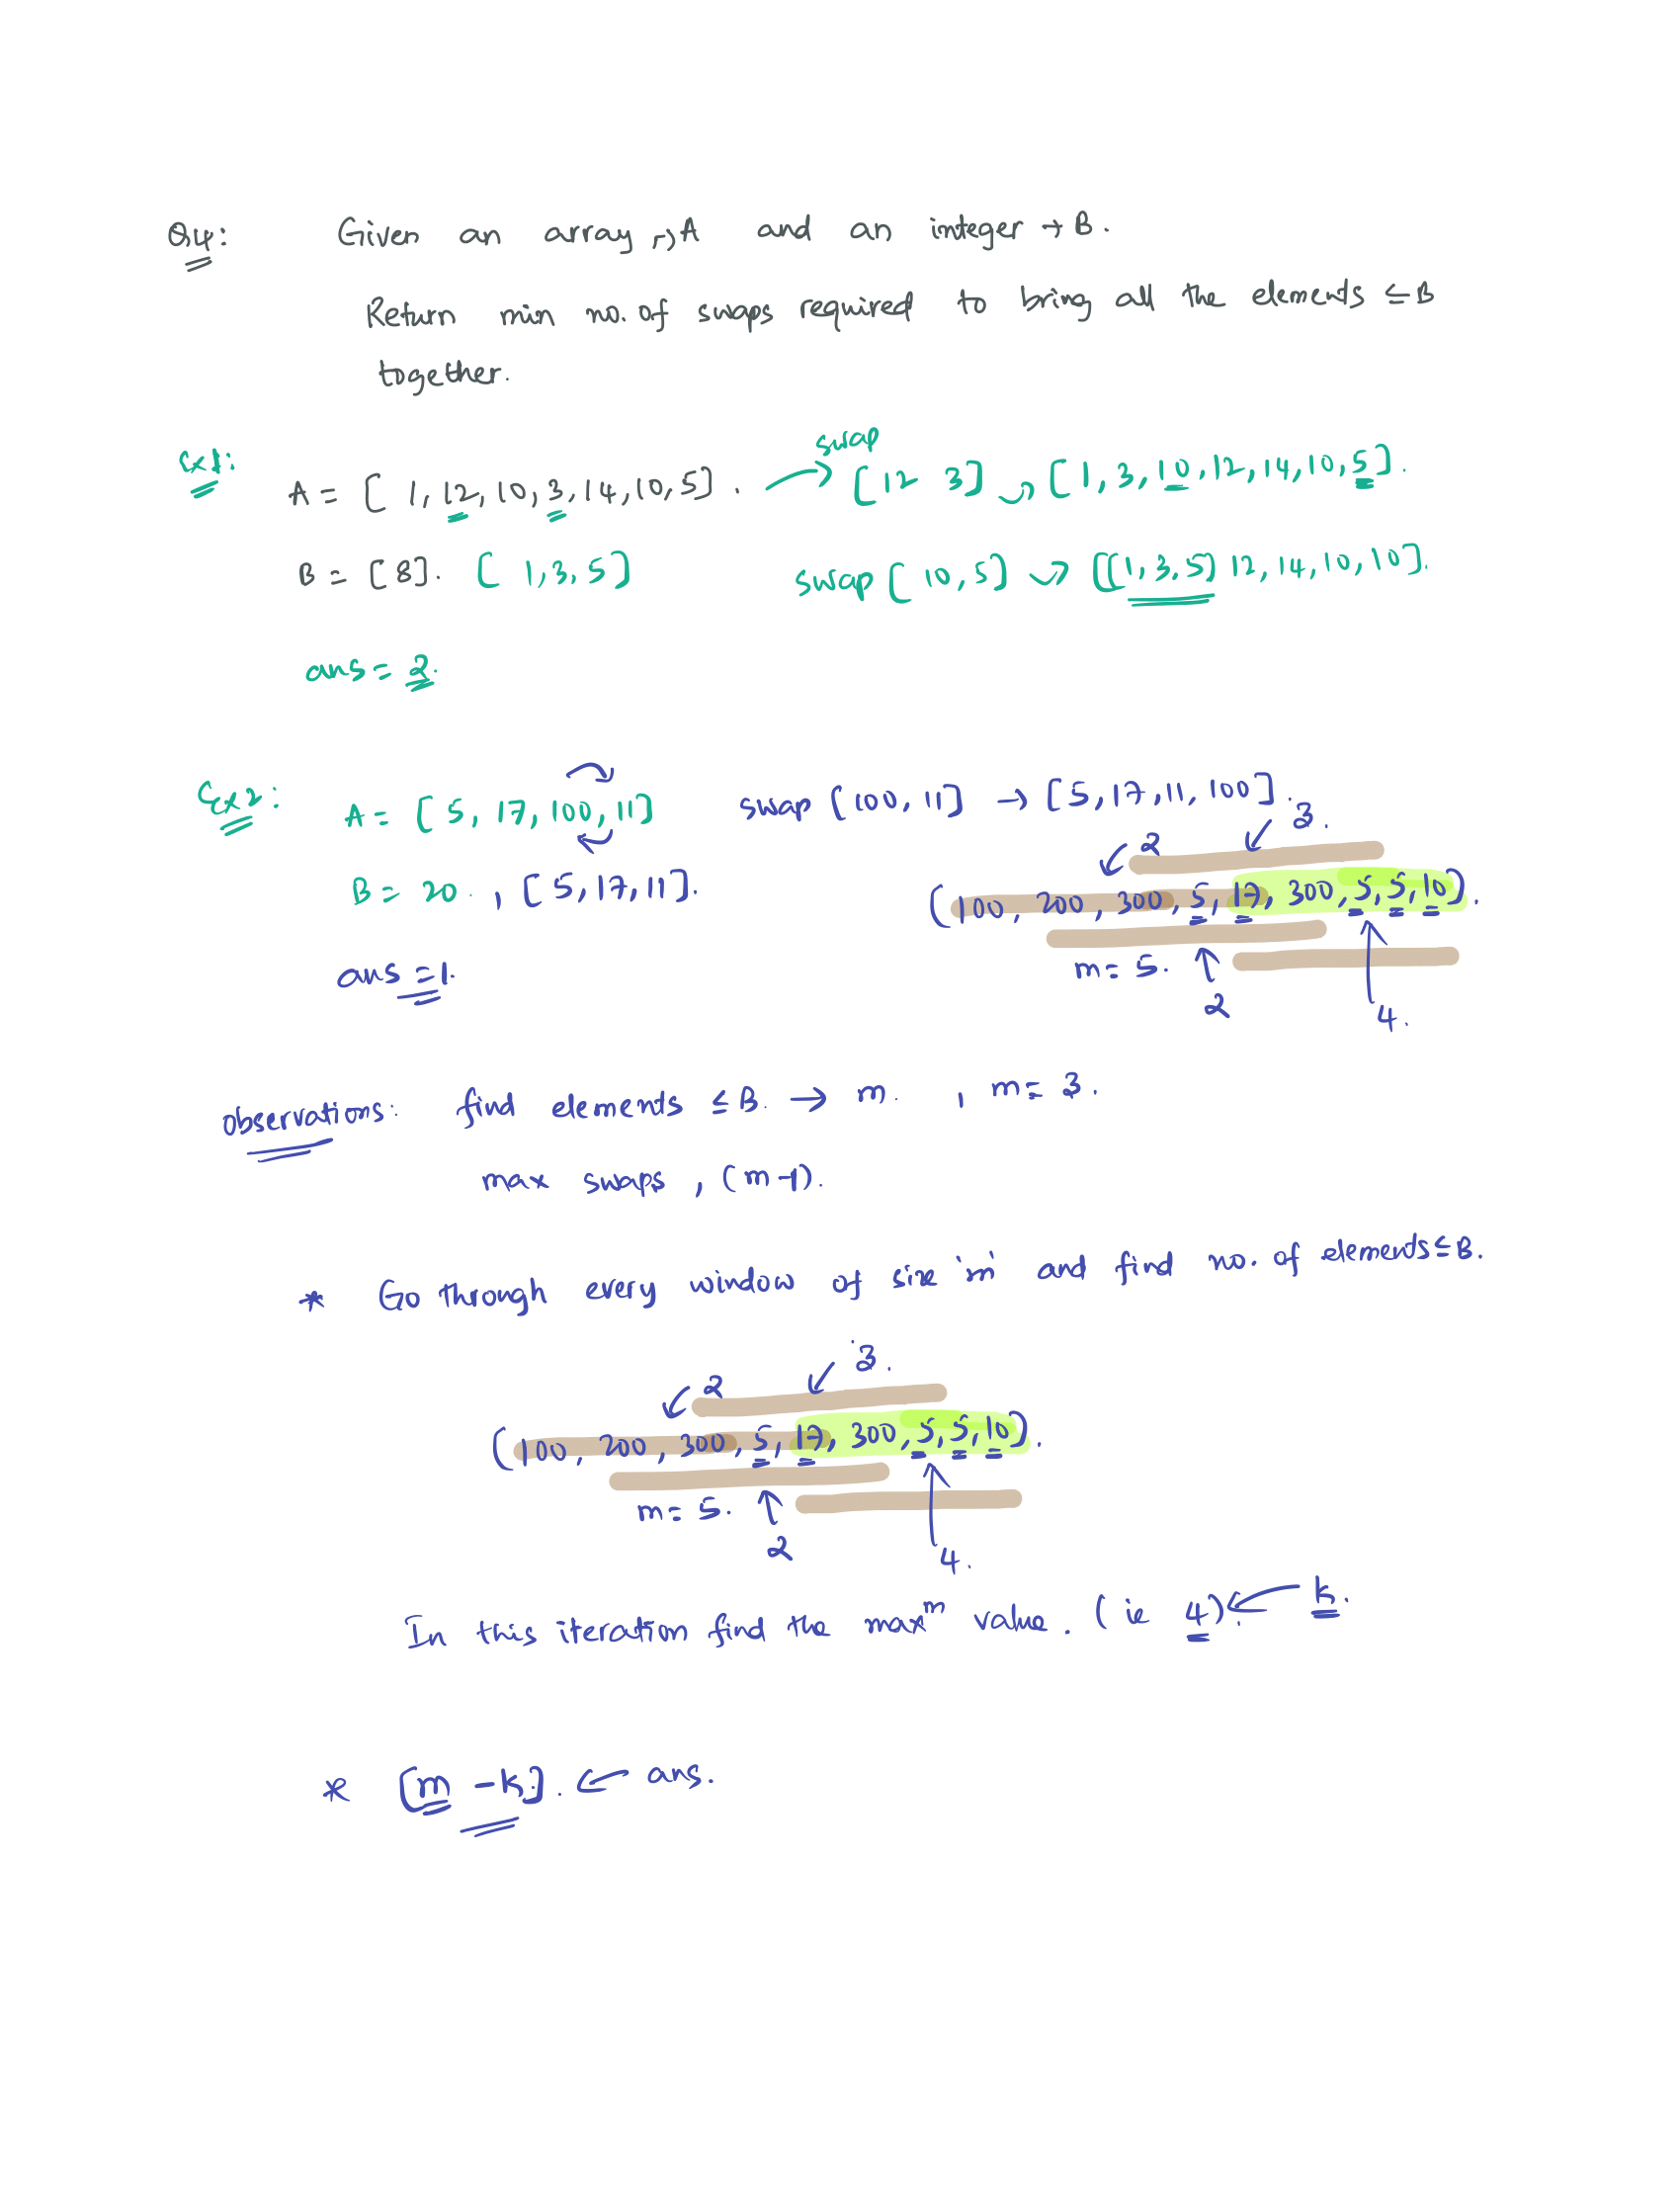 Q4: Given an array → A and an integer → B.
Return min no. of swaps required to bring all the elements ≤ B
together.
Ex1: A = [ 1, 12, 10, 3, 14, 10, 5] . swap → [12 3] → [1, 3, 10, 12, 14, 10, 5].
B = [8]. [ 1, 3, 5] swap [ 10, 5] → [[1, 3, 5] 12, 14, 10, 10].
ans = 2.
Ex2: A = [ 5, 17, 100, 11] swap [100, 11] → [5, 17, 11, 100].
2 3.
B = 20. , [5, 17, 11]. (100, 200, 300, 5, 17, 300, 5, 5, 10).
ans = 1. m = 5. 2 4.
observations: find elements ≤ B. → m. , m = 3.
max swaps , (m-1).
* Go through every window of size 'm' and find no. of elements ≤ B.
2 3.
(100, 200, 300, 5, 17, 300, 5, 5, 10).
m = 5. 2 4.
In this iteration find the maxᵐ value. (ie 4). ← k.
* [m - k]. ← ans.